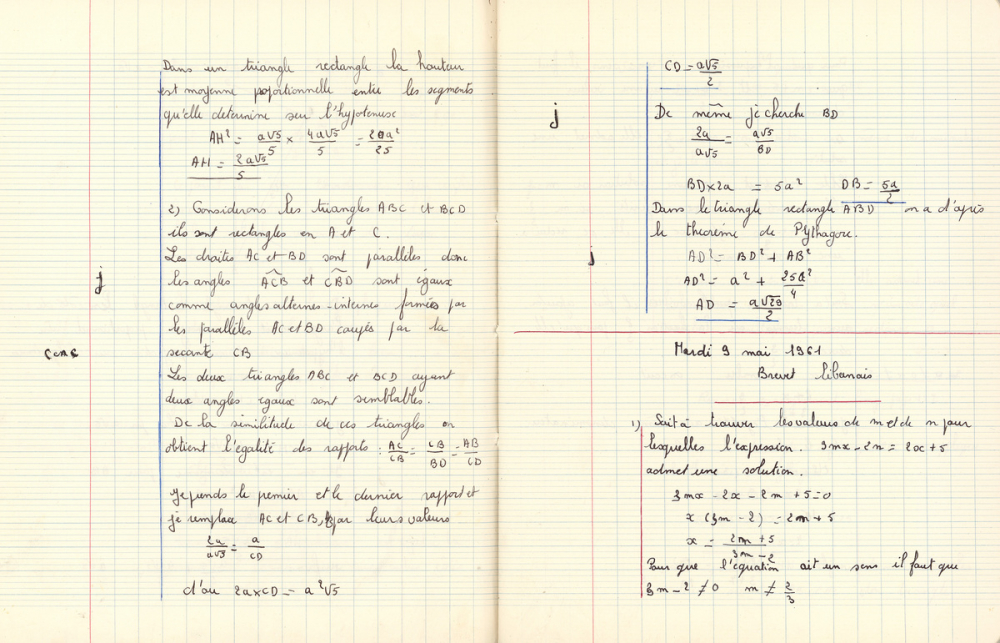 Dans un triangle rectangle la hauteur
est moyenne poportionnelle entre les segments
qu'elle determine sur l'hypotenuse
AH² = a√5/5 × 4a√5/5 = 20a²/25
AH = 2a√5/5
2) Considerons les triangles ABC et BCD
ils sont rectangles en A et C.
Les droites AC et BD sont parallèles donc
j
les angles ACB et CBD sont égaux
comme angles alternes-internes formés par
les parallèles AC et BD coupés par la
secante CB
Les deux triangles ABC et BCD ayant
deux angles egaux sont semblables.
De la similitude de ces triangles on
obtient l'egalité des rapports : AC/CB = CB/BD = AB/CD
Je prends le premier et le dernier rapport et
je remplace AC et CB, par leurs valeurs
2a/a√5 = a/CD
d'ou 2a×CD = a²√5
CD = a√5/2
j
De même je cherche BD
2a/a√5 = a√5/BD
BD×2a = 5a² DB = 5a/2
Dans le triangle rectangle ABD on a d'après
le theoreme de Pythagore.
j
AD² = BD² + AB²
AD² = a² + 25a²/4
AD = a√29/2
Mardi 9 mai 1961
Brevet libanais
1) Soit à trouver les valeurs de m et de n pour
lesquelles l'expression. 3mx - 2m = 2x + 5
admet une solution.
3mx - 2x - 2m + 5 = 0
x (3m - 2) = 2m + 5
x = 2m + 5/3m - 2
Pour que l'equation ait un sens il faut que
3m - 2 ≠ 0 m ≠ 2/3